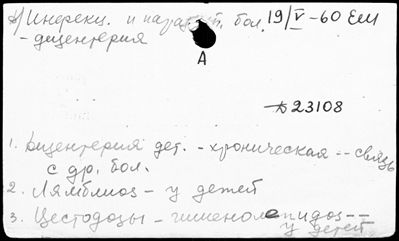 Инфекц. и паразит. бол. 19/V-60 Ем
- дизентерия
А
Д23108
1. Дизентерия дет. - хроническая -- связь
с др. бол.
2. Лямблиоз - у детей
3. Цестодозы - гименолепидоз --
у детей